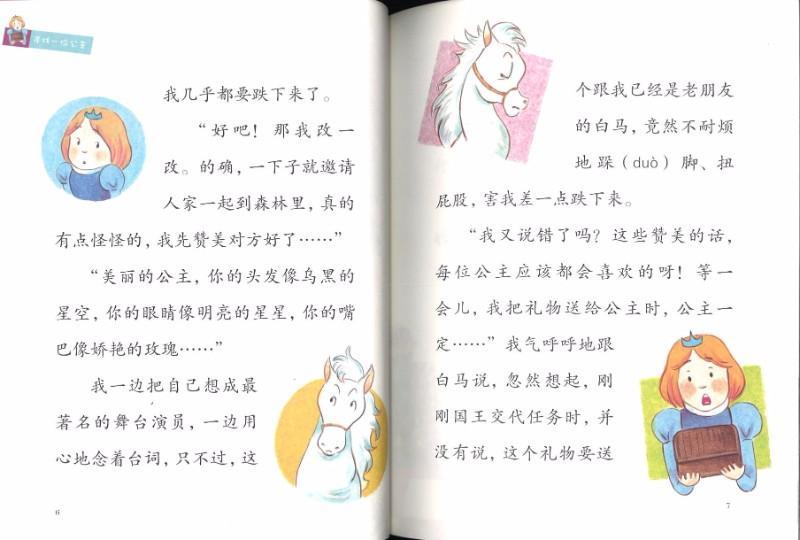 寻找一位公主
我几乎都要跌下来了。
“好吧！那我改一
改。的确，一下子就邀请
人家一起到森林里，真的
有点怪怪的，我先赞美对方好了……”
“美丽的公主，你的头发像乌黑的
星空，你的眼睛像明亮的星星，你的嘴
巴像娇艳的玫瑰……”
我一边把自己想成最
著名的舞台演员，一边用
心地念着台词，只不过，这
6
个跟我已经是老朋友
的白马，竟然不耐烦
地跺（duò）脚、扭
屁股，害我差一点跌下来。
“我又说错了吗？这些赞美的话，
每位公主应该都会喜欢的呀！等一
会儿，我把礼物送给公主时，公主一
定……”我气呼呼地跟
白马说，忽然想起，刚
刚国王交代任务时，并
没有说，这个礼物要送
7